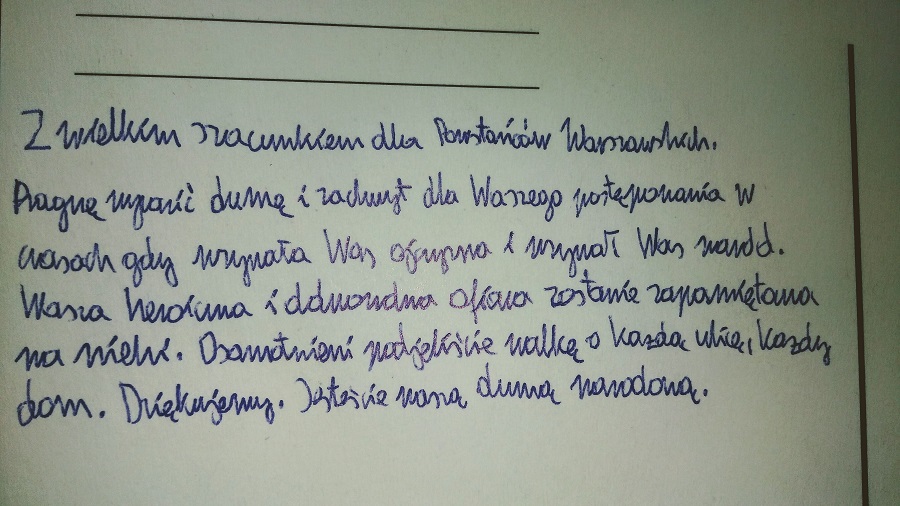 Z wielkim szacunkiem dla Powstańców Warszawskich.
Pragnę wyrazić dumę i zachwyt dla Waszego postępowania w
czasach gdy wzywała Was ojczyzna i wzywał Was naród.
Wasza heroiczna i odważna ofiara zostanie zapamiętana
na wieki. Osamotnieni podjęliście walkę o każdą ulicę, każdy
dom. Dziękujemy. Jesteście naszą dumą narodową.